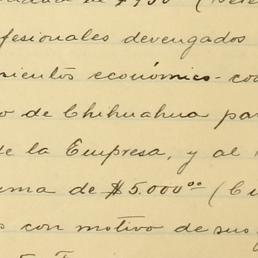 de $750 (Sete
fesionales devengados
mientos económico-coo
o de Chihuahua par
de la Empresa, y al
uma de $5.000⁰⁰ (Ci
s con motivo de sus